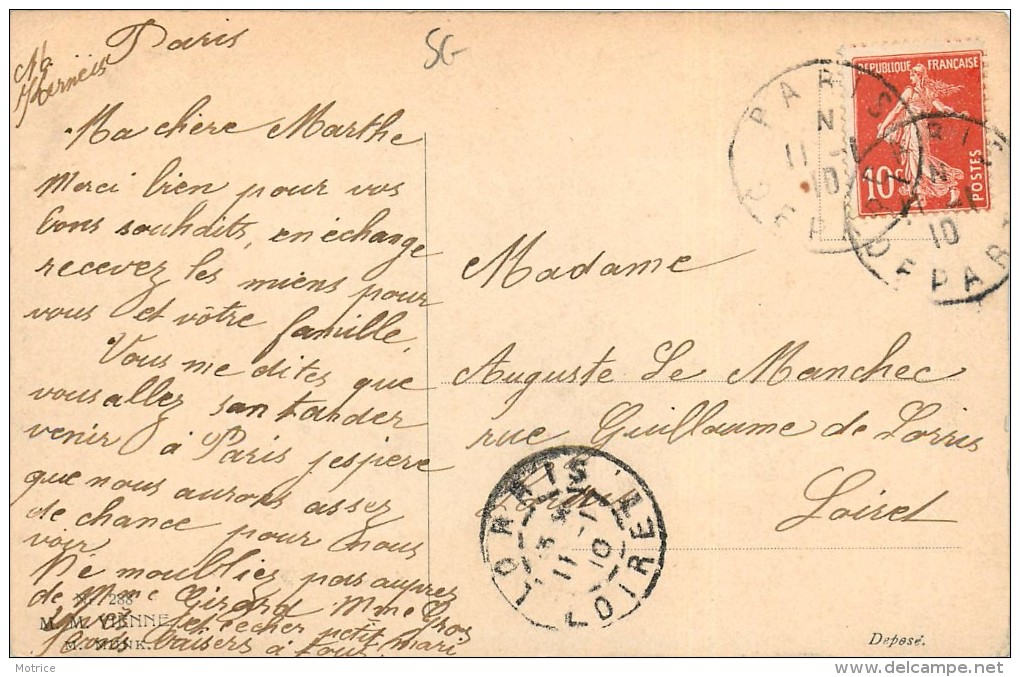 Paris
SG
Ma chère Marthe
Merci bien pour vos
bons souhdits, en échange
recevez les miens pour
vous et vôtre famille.
Vous me dites que
vous allez san tarder
venir à Paris j'espère
que nous aurons assez
de chance pour nous
voir.
Ne moubliez pas auprès
de Mme Girard Mme Gros
petit mari
baisers à tous
No. 288
M. M. VIENNE
M. MUNK.
REPUBLIQUE FRANÇAISE
10c
POSTES
PARIS
N
11 -1
10
DEPART
PARIS
N
11 -1
10
DEPART
Madame
Auguste Le Manchec
rue Guillaume de Lorris
Lorris
Loiret
LORRIS
11 -1
10
LOIRET
Deposé.
Motrice
www.delcampe.net